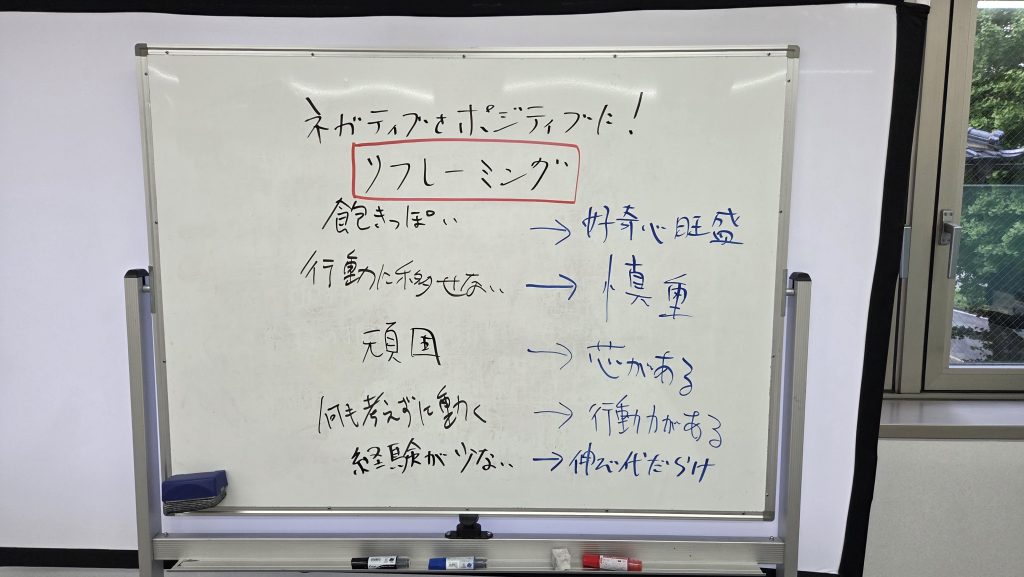 ネガティブをポジティブに!
リフレーミング
飽きっぽい → 好奇心旺盛
行動に移せない → 慎重
頑固 → 芯がある
何も考えずに動く → 行動力がある
経験が少ない → 伸び代だらけ